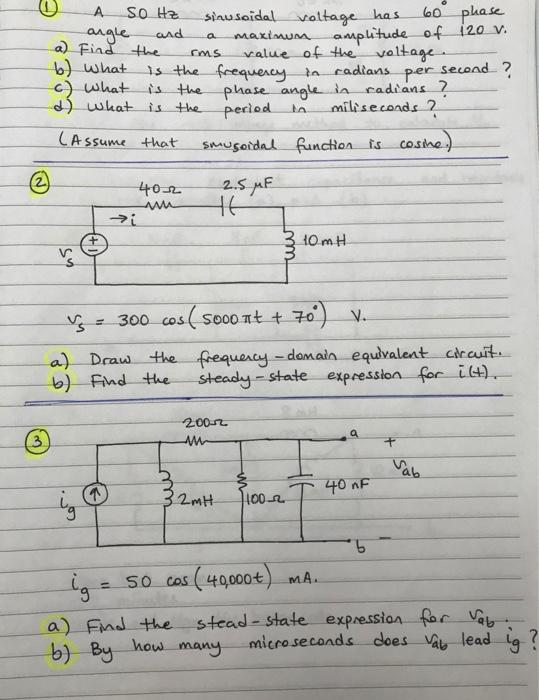 ① A 50 Hz sinusoidal voltage has 60° phase
angle and a maximum amplitude of 120 V.
a) Find the rms value of the voltage.
b) What is the frequency in radians per second?
c) What is the phase angle in radians?
d) What is the period in miliseconds?
(Assume that smusoidal function is cosine.)
②
40Ω 2.5 μF
→i
+
−
Vs
10mH
Vs = 300 cos(5000πt + 70°) V.
a) Draw the frequency-domain equivalent circuit.
b) Find the steady-state expression for i(t).
③
200Ω
a +
ig
2mH
100Ω
40 nF
Vab
b −
ig = 50 cos(40,000t) mA.
a) Find the stead-state expression for Vab.
b) By how many microseconds does Vab lead ig?